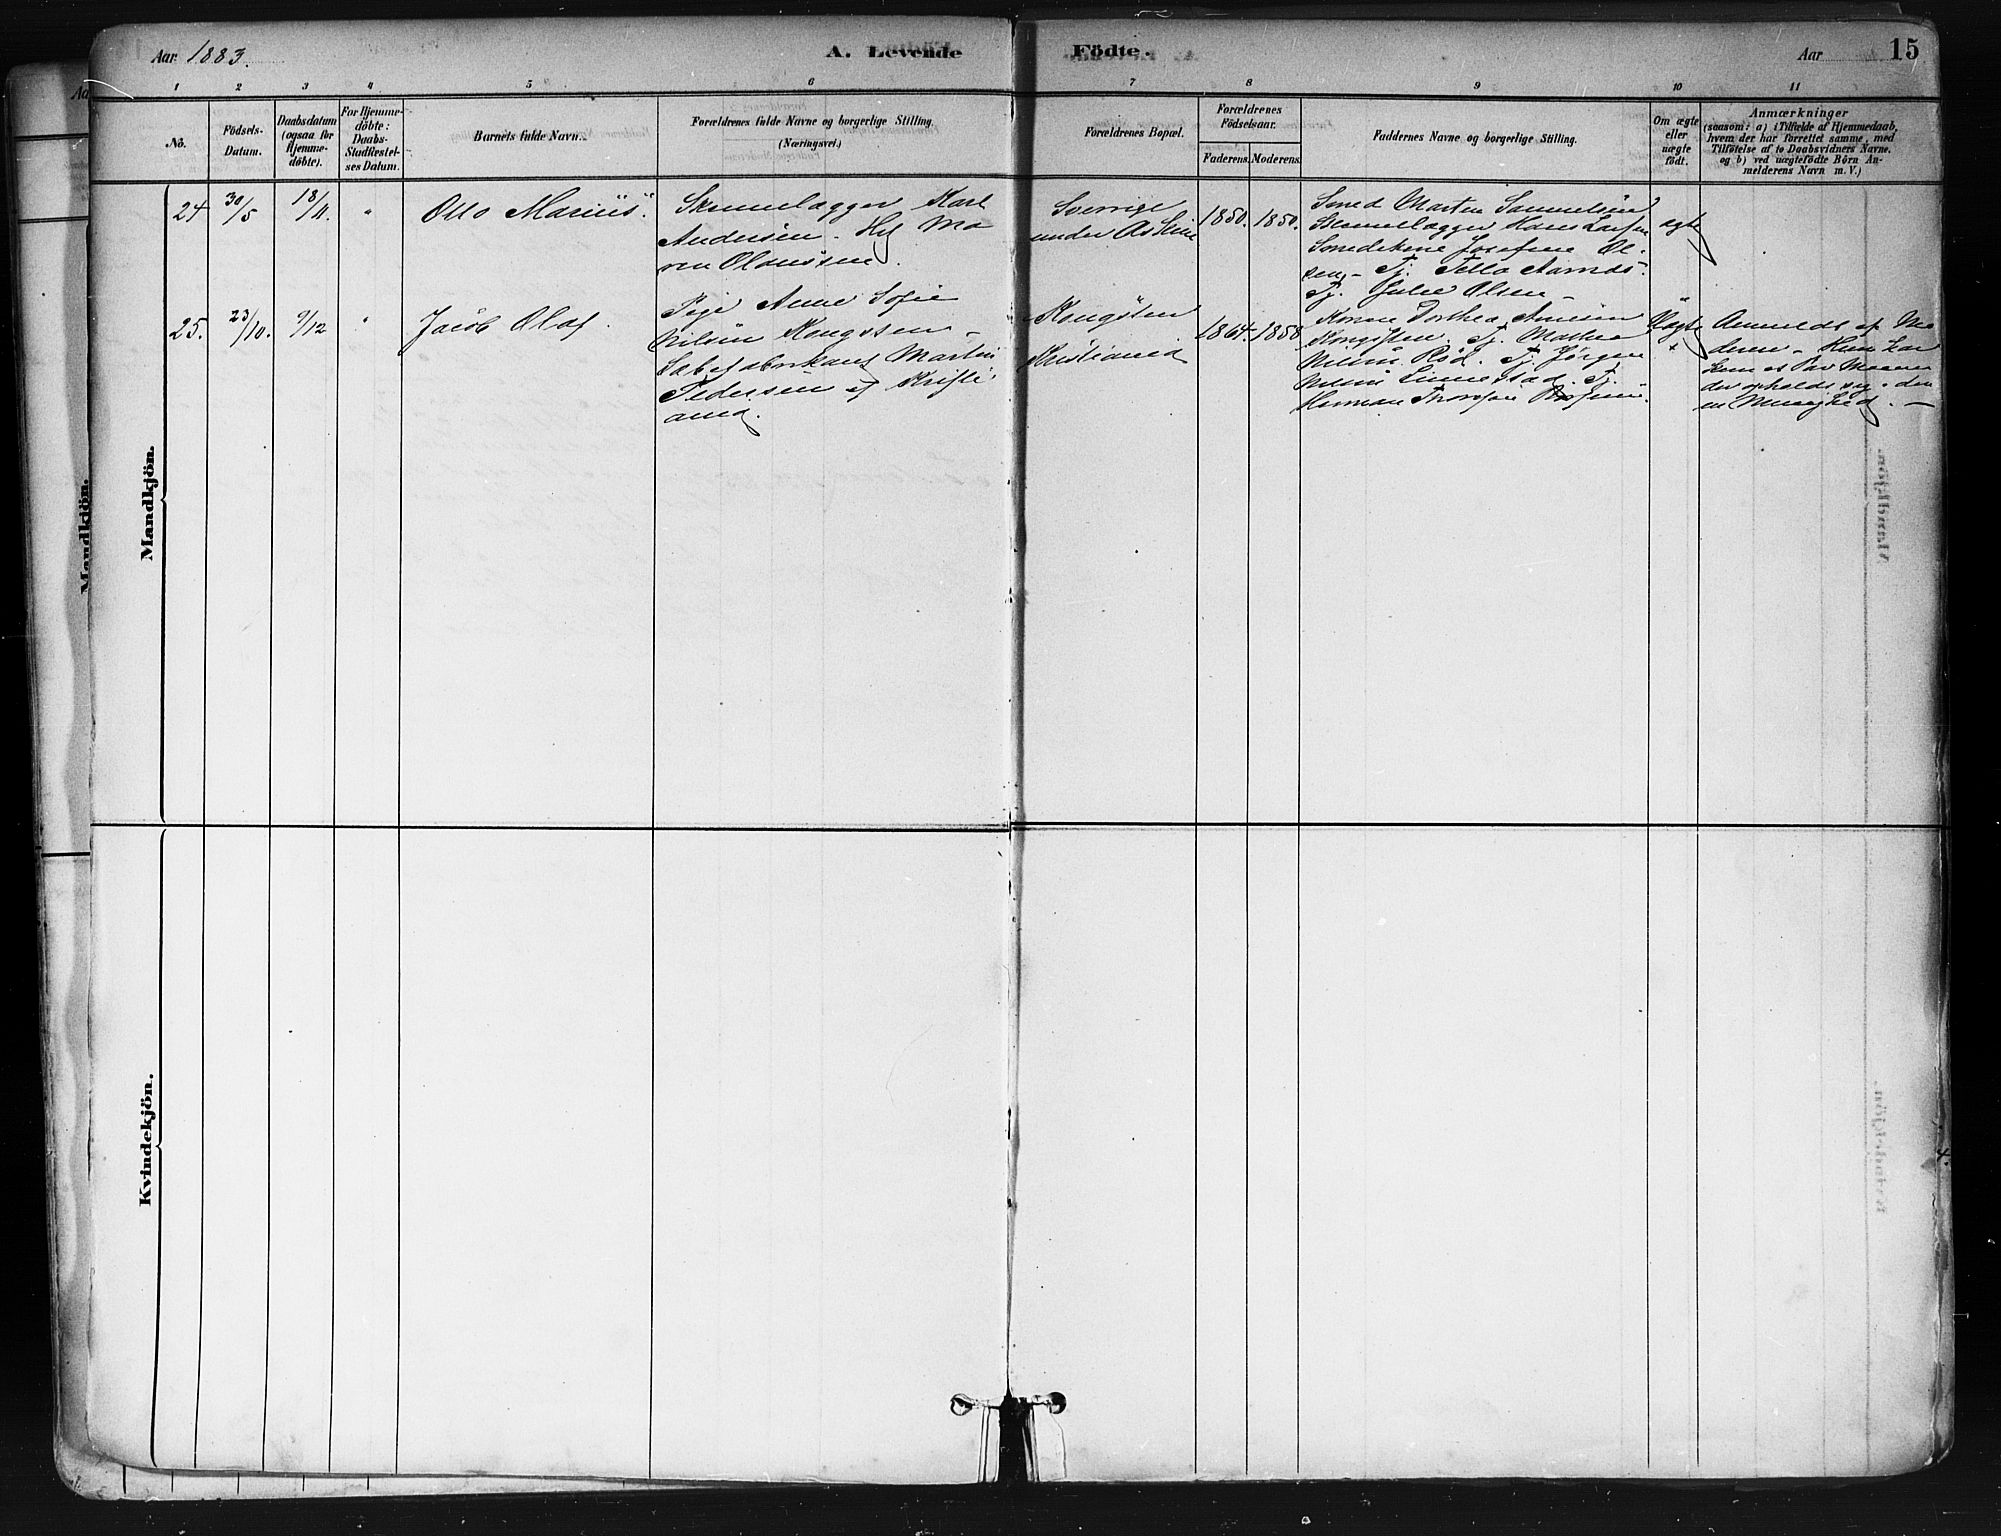 Aar 1883.
A. Levende
Födte.
Aar
15
1 2 3 4 5 6 7 8 9 10 11
No.
Födsels-
Datum.
Daabsdatum
(ogsaa for
Hjemme-
döbte).
For Hjemme-
döbte:
Daabs-
Stadfæstel-
ses Datum.
Barnets fulde Navn.
Forældrenes fulde Navne og borgerlige Stilling.
(Næringsvei.)
Forældrenes Bopæl.
Forældrenes
Födselsaar.
Faderens. Moderens.
Faddernes Navne og borgerlige Stilling.
Om ægte
eller
uægte
födt.
Anmærkninger
(saasom: a) i Tilfælde af Hjemmedaab,
hvem der har forrettet samme, med
Tilföielse af to Daabsvidners Navne,
og b) ved uægtefödte Börn An-
melderens Navn m. V.)
Mandkjön.
24
30/5
18/11.
"
Otto Marius.
Skinnelægger Karl
Andersen. Ht Ma
ren Olaussen.
Sverrige
under
1850. 1850.
Smed Marten Samuelsen
Skinnelægger Hans Larsen
Josefine Ol-
sen - Tj.
Tj. Julie Olsen -
ægte
25.
23/10.
9/12
"
Jacob Olaf.
Pige Anne Sofie
Nilsen Kongsten -
Martin
Pedersen af Kristi-
ania.
Kongsten
Kristiania
1864. 1858
Kone Dorthea
Kongsten. Tj. Mathea
Nilsen Röd. Tj. Jörgen
Nilsen Linnestad. Tj.
Herman
Uægte
+
Anmeldt af Mo
deren -
den opholdt sig i den
ne Menighed. -
Kvindekjön.